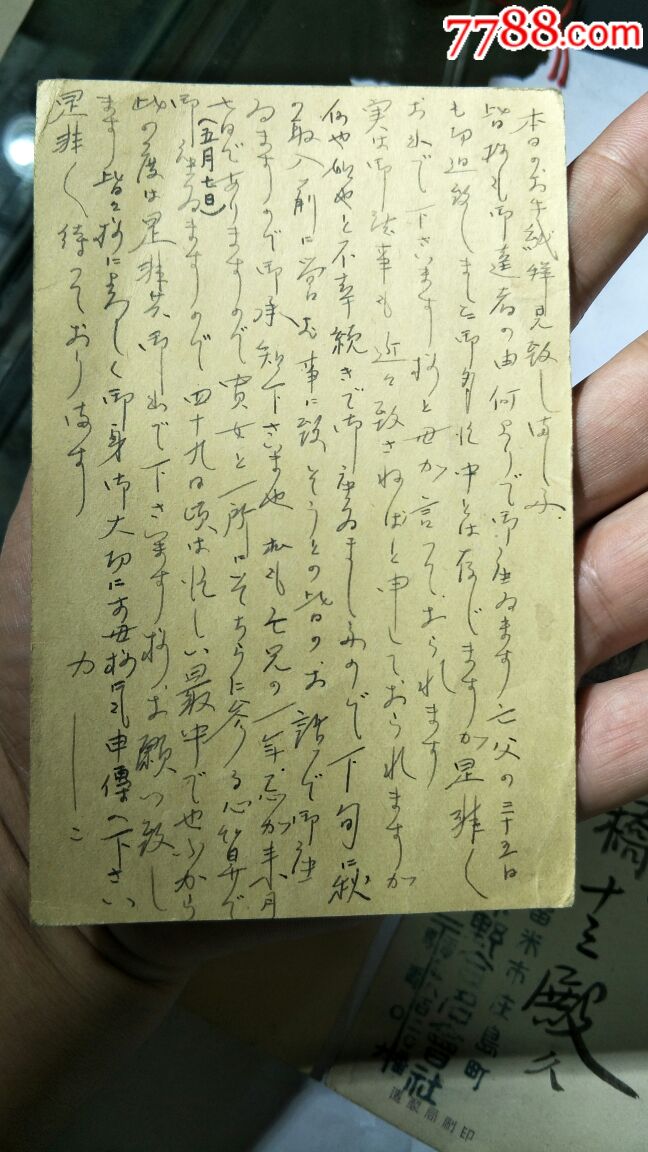 7788.com
本日のお手紙拝見致しました
皆様も御達者の由何よりで御座ゐます 亡父の三十五日
も切迫致しました御多忙中とは存じますが是非〱
おいで下さいます様と母が言っておられます
実は御法事も近々致さねばと申しておられますが
何や彼やと不幸続きで御座ゐましたので下旬に
の取入前に営む事に致そうとの皆のお話で御座
ゐますので御承知下さいませ 私も亡兄の一年忌が来月
七日でありますので貴女と一所にそちらに参る心算で
(五月七日)
御座ゐますので 四十九日頃は忙しい最中でせうから
此の度は是非共御いで下さいます様お願ひ致し
ます 皆々様によろしく御身御大切にお母様に申傳へ下さい
是非〱待っております
カ ー コ
十三殿
留米市庄島町
社
印刷局製